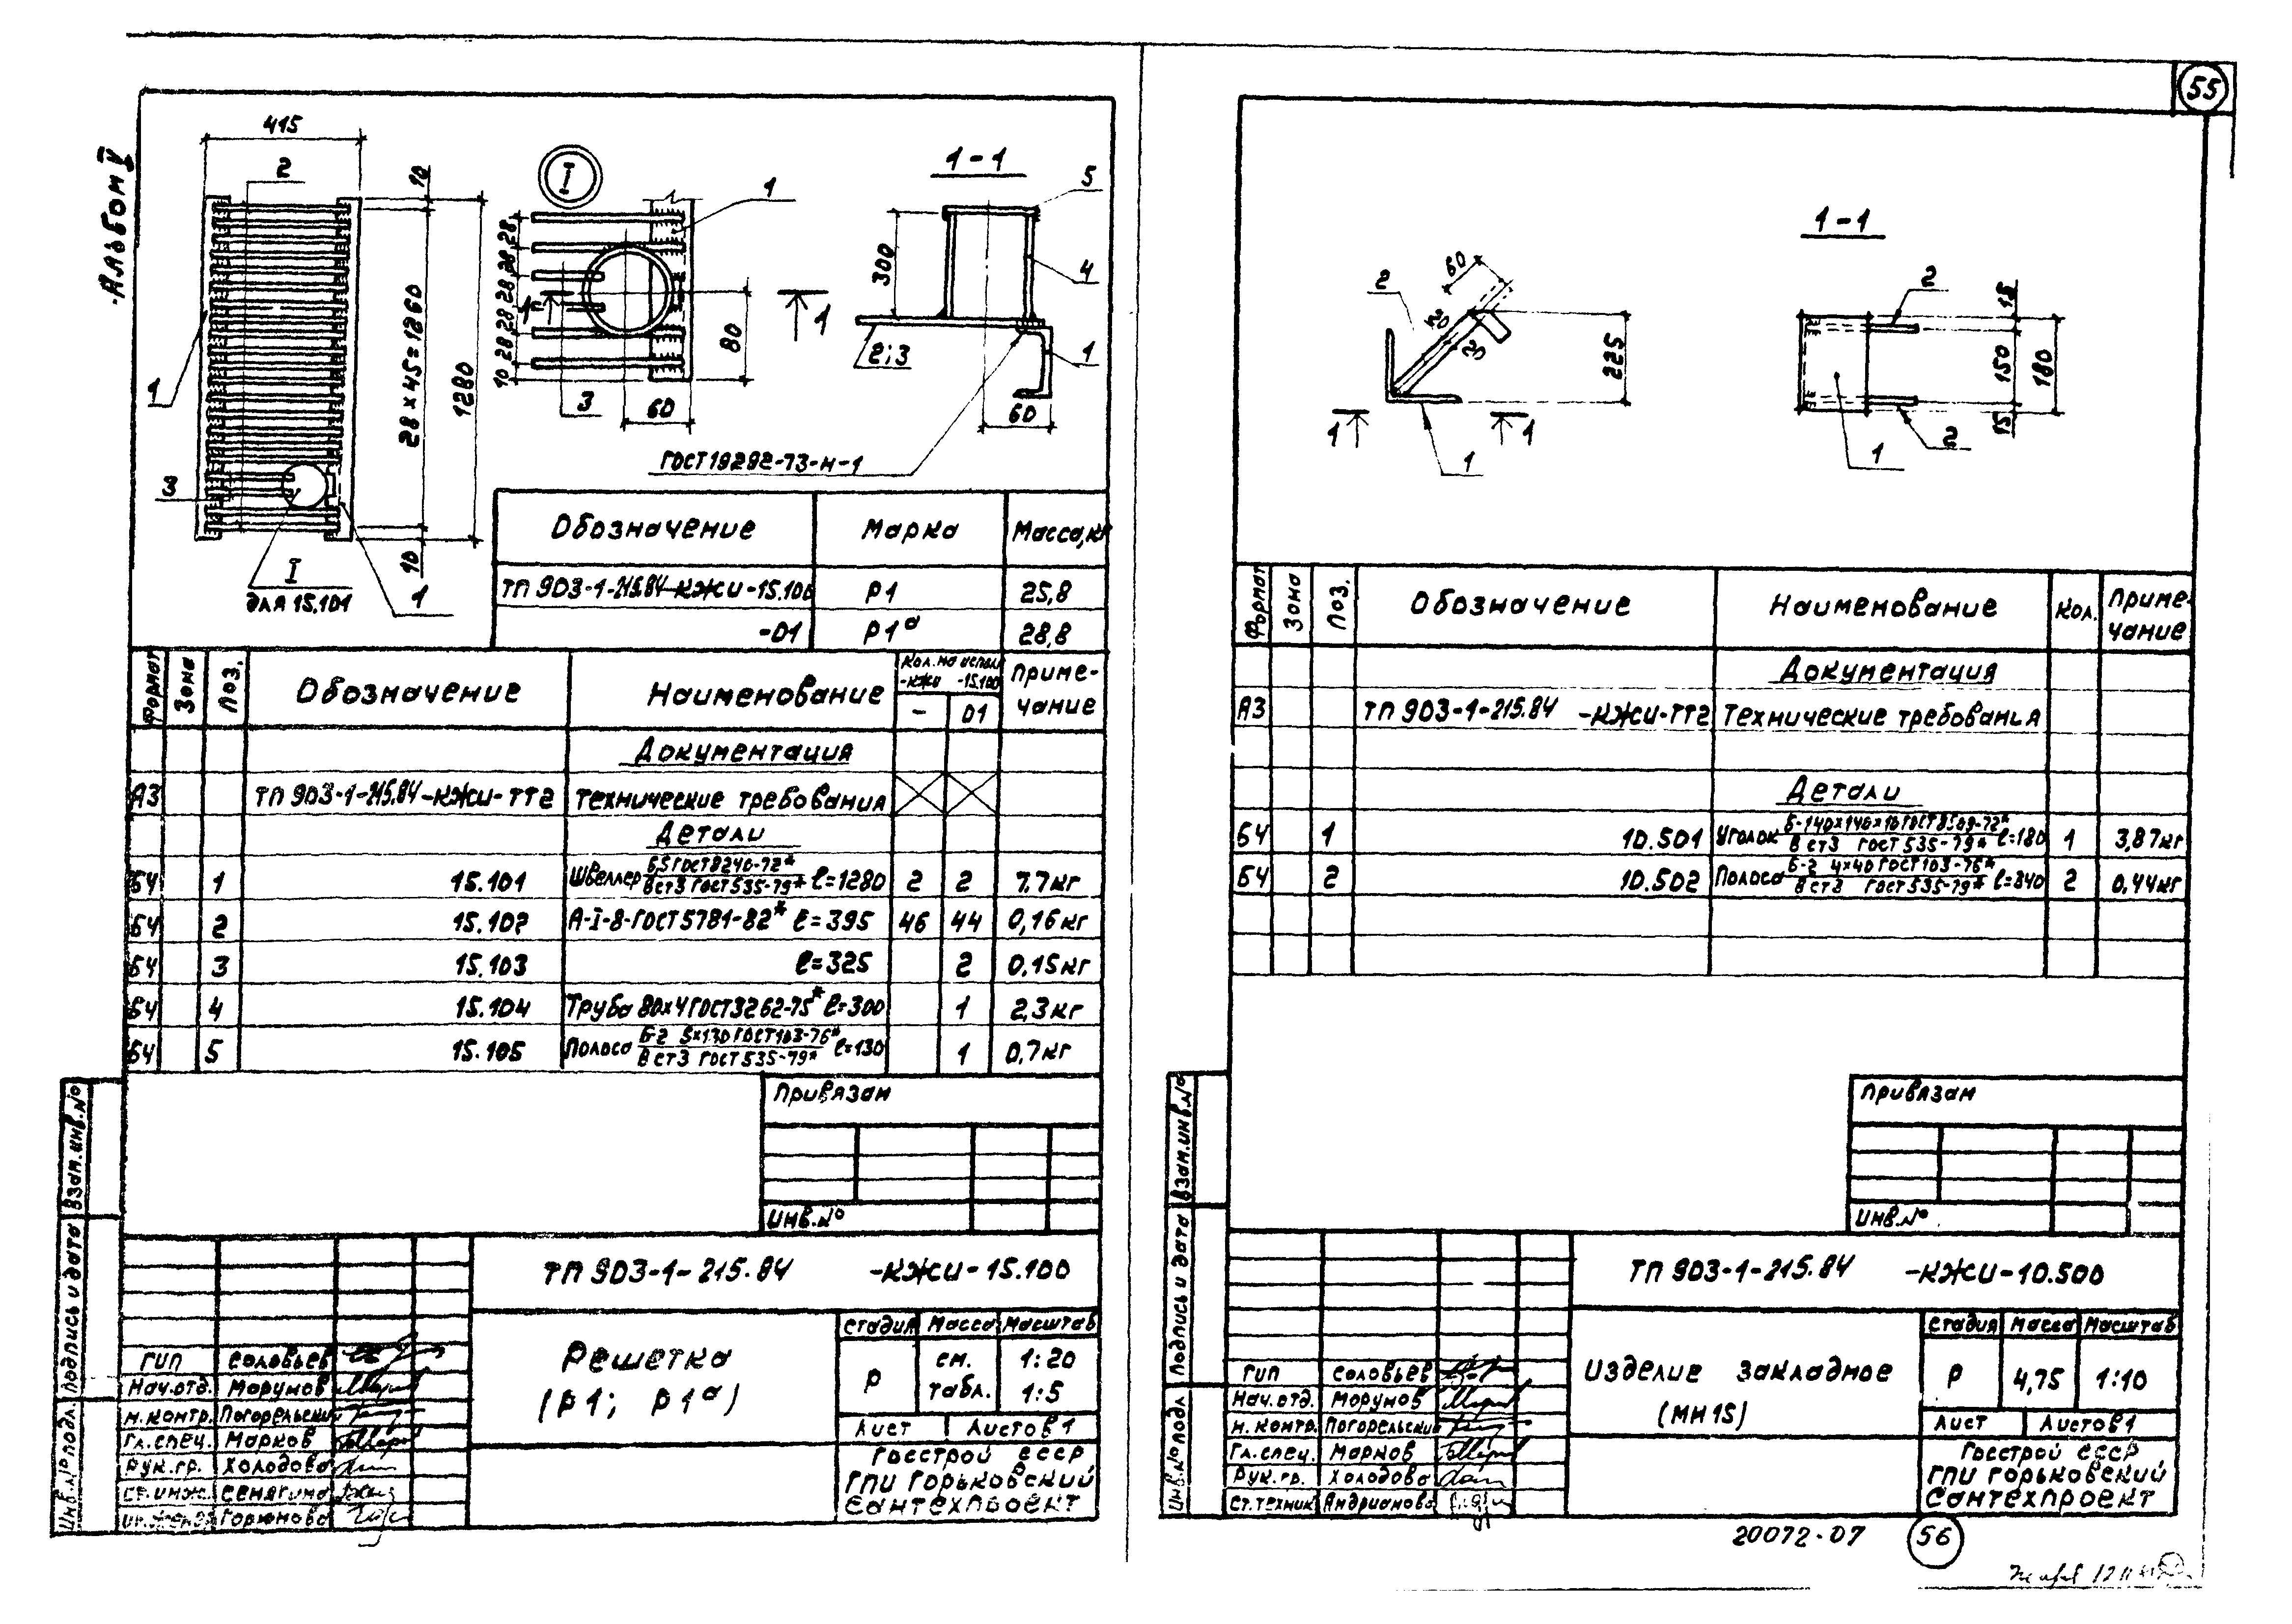 55
Альбом V
415
2
10
28×45=1260
1280
1
3
10
I
для 15.101
1
I
1
28
28
28
28
28
10
80
3
60
1
1-1
5
300
4
2;3
1
60
ГОСТ 19292-73-Н-1
Обозначение Марка Масса, кг
ТП 903-1-215.84-КЖИ-15.100 Р1 25,8
-01 Р1а 28,8
Формат Зона Поз. Обозначение Наименование Кол. на исполн. -КЖИ -15.100 Приме-
- 01 чание
Документация
А3 ТП 903-1-215.84-КЖИ-ТТ2 Технические требования
Детали
БЧ 1 15.101 Швеллер 6,5 ГОСТ 8240-72* / ВСт3 ГОСТ 535-79* ℓ=1280 2 2 7.7кг
БЧ 2 15.102 А-I-8-ГОСТ 5781-82* ℓ=395 46 44 0,16кг
БЧ 3 15.103 ℓ=325 2 0.15кг
БЧ 4 15.104 Труба 80×4 ГОСТ 3262-75* ℓ=300 1 2,3кг
БЧ 5 15.105 Полоса Б-2 5×130 ГОСТ 103-76* / ВСт3 ГОСТ 535-79* ℓ=130 1 0,7кг
Привязан
Инв.№
ТП 903-1-215.84 -КЖИ-15.100
Решетка
(Р1; Р1а)
Стадия Масса Масштаб
Р см. табл. 1:20 1:5
Лист Листов 1
Госстрой СССР
ГПИ Горьковский
Сантехпроект
ГИП Соловьев
Нач.отд. Морунов
Н.контр. Погорельский
Гл.спец. Марков
Рук.гр. Холодова
Ст.инж. Сенягина
Инженер Горюнова
Взам.инв.№
Подпись и дата
Инв.№подл.
1-1
2
60
20
20
225
1
1
1
2
15
150
180
15
2
1
Формат Зона Поз. Обозначение Наименование Кол. Приме-
чание
Документация
А3 ТП 903-1-215.84 -КЖИ-ТТ2 Технические требования
Детали
БЧ 1 10.501 Уголок Б-140×140×10 ГОСТ 8509-72* / ВСт3 ГОСТ 535-79* ℓ=180 1 3,87кг
БЧ 2 10.502 Полоса Б-2 4×40 ГОСТ 103-76* / ВСт3 ГОСТ 535-79* ℓ=340 2 0,44кг
Привязан
Инв.№
ТП 903-1-215.84 -КЖИ-10.500
Изделие закладное
(МН15)
Стадия Масса Масштаб
Р 4,75 1:10
Лист Листов 1
Госстрой СССР
ГПИ Горьковский
Сантехпроект
ГИП Соловьев
Нач.отд. Морунов
Н.контр. Погорельский
Гл.спец. Марков
Рук.гр. Холодова
Ст.техник Андрианова
Взам.инв.№
Подпись и дата
Инв.№подл.
20072-07 56